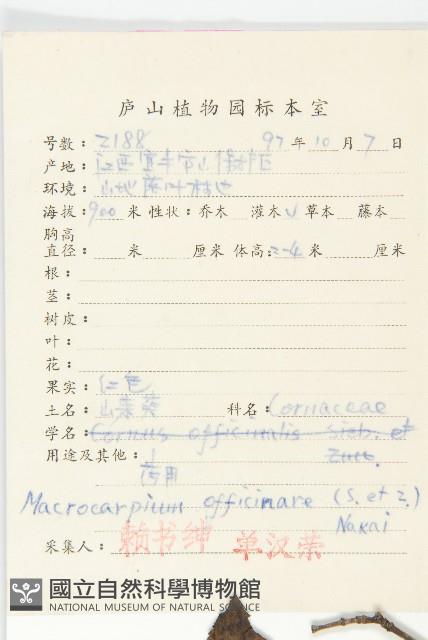 庐山植物园标本室
号数：2188 97年10月7日
产地：江西宜丰
环境：山地落叶林边
海拔：900米 性状：乔木 灌木√草本 藤本
胸高
直径： 米 厘米 体高：2-4米 厘米
根：
茎：
树皮：
叶：
花：
果实：红色
土名：山茱萸 科名：Cornaceae
学名：Cornus officinalis Sieb. et
Zucc.
用途及其他：
药用
Macrocarpium officinare (S. et Z.)
Nakai
采集人：赖书绅 单汉荣
國立自然科學博物館
NATIONAL MUSEUM OF NATURAL SCIENCE